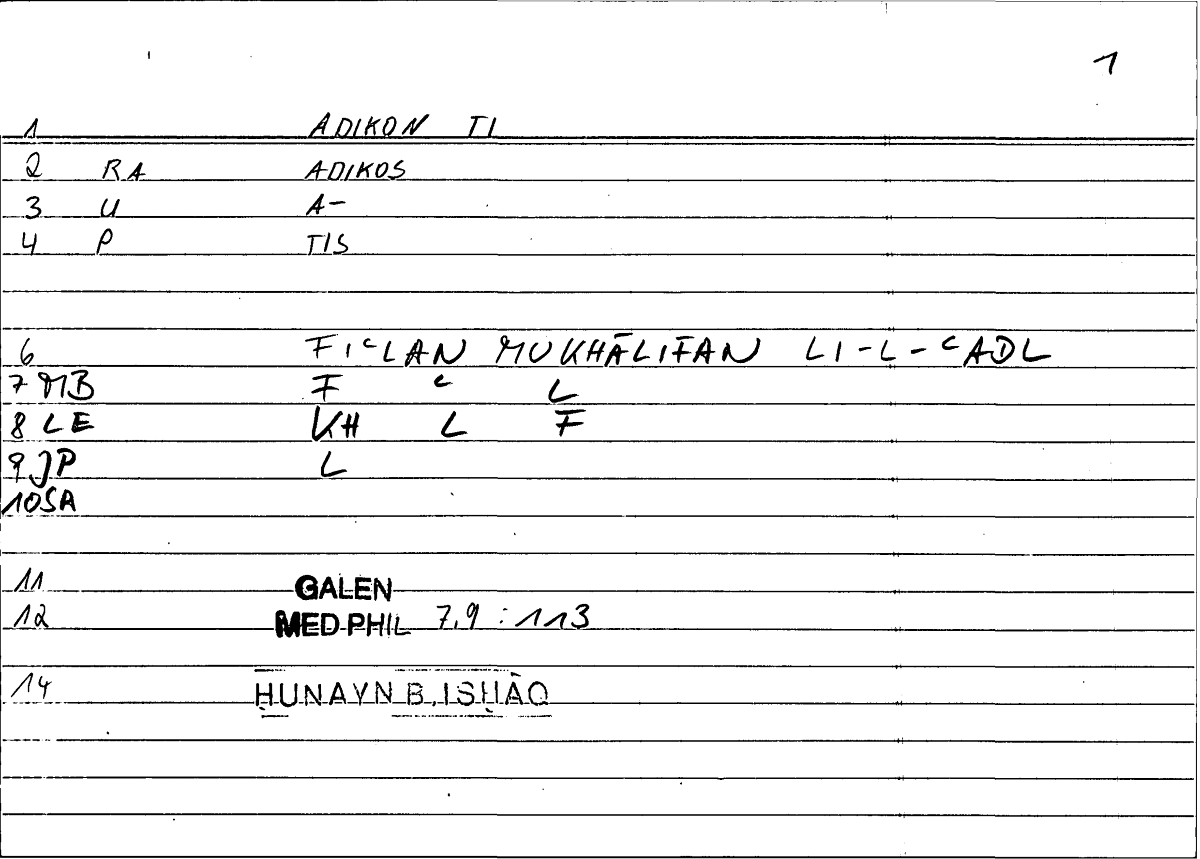 1
1 ADIKON TI
2 RA ADIKOS
3 U A-
4 P TIS
6 FIʿLAN MUKHĀLIFAN LI-L-ʿADL
7 MB F ʿ L
8 LE KH L F
9 JP L
10 SA
11 GALEN
12 MED.PHIL 7,9 : 113
14 ḤUNAYN B. ISḤĀQ